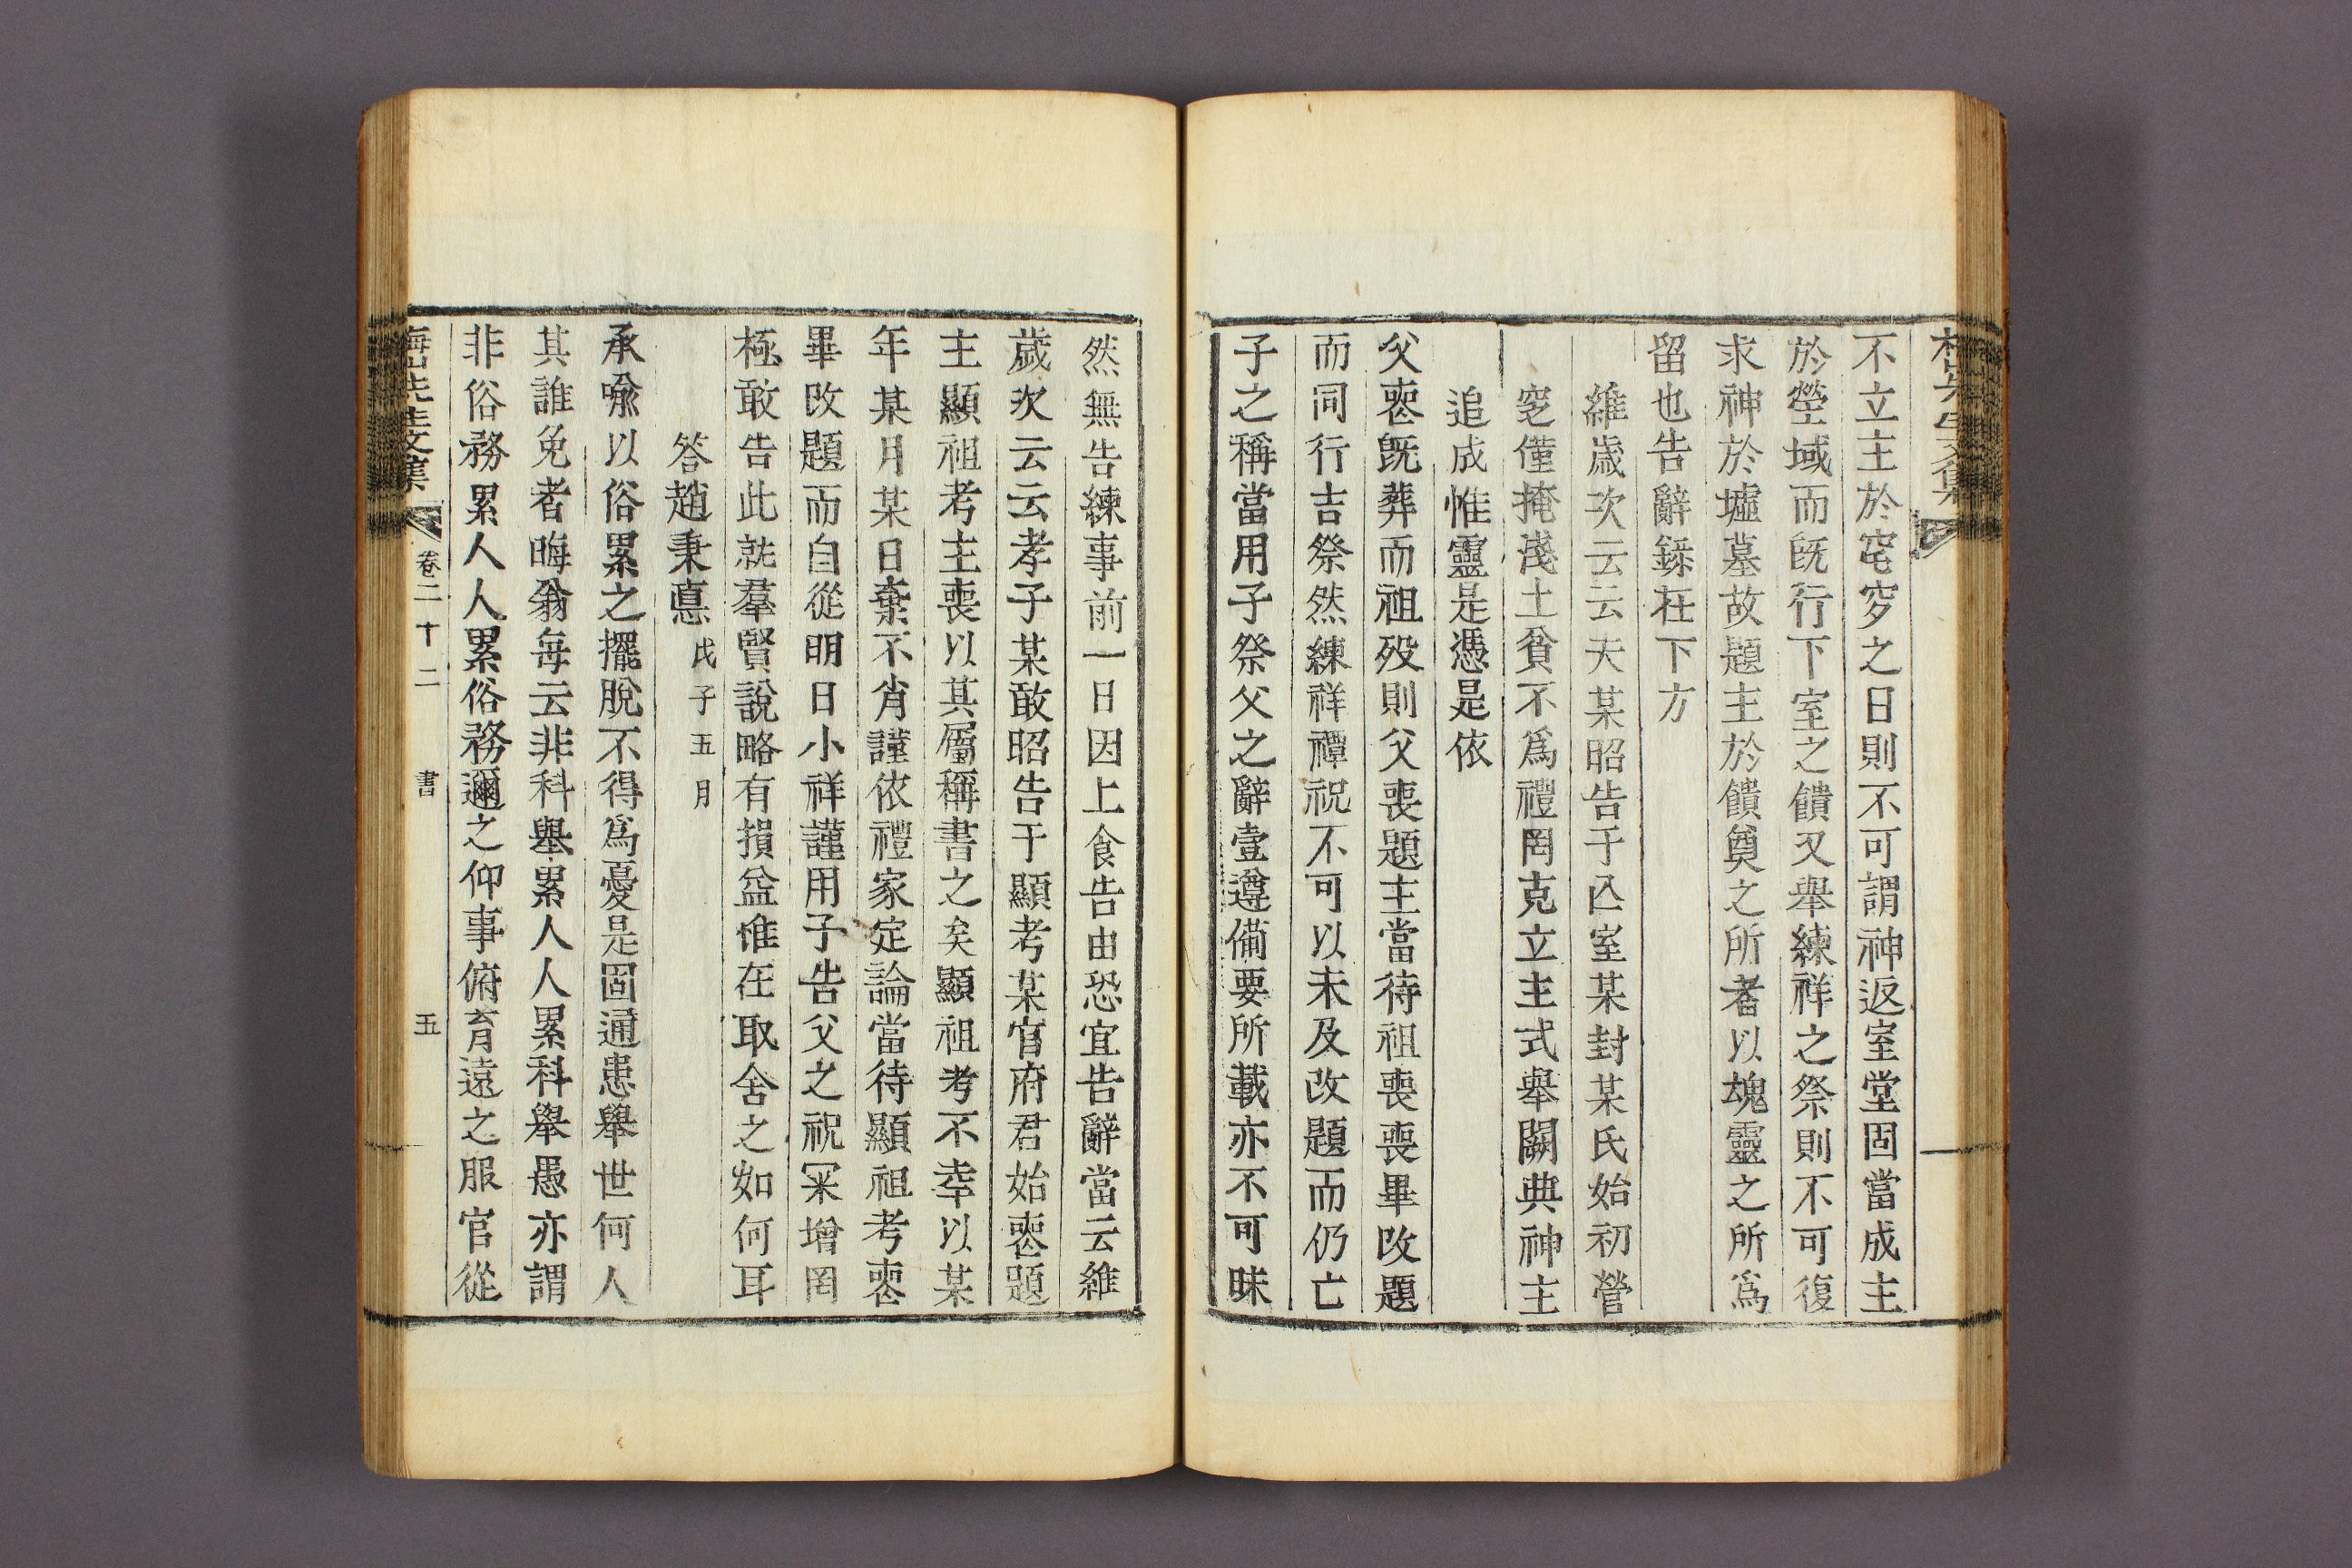 不立主於窀穸之日則不可謂神返室堂固當成主
於塋域而旣行下室之饋又舉練祥之祭則不可復
求神於墟墓故題主於饋奠之所者以魂靈之所爲
留也告辭錄在下方
維歲次云云夫某昭告于亾室某封某氏始初營
窆僅掩淺土貧不爲禮罔克立主式舉闕典神主
追成惟靈是憑是依
父喪旣葬而祖歿則父喪題主當待祖喪喪畢改題
而同行吉祭然練祥禫祝不可以未及改題而仍亡
子之稱當用子祭父之辭壹遵備要所載亦不可昧
然無告練事前一日因上食告由恐宜告辭當云維
歲次云云孝子某敢昭告于顯考某官府君始喪題
主顯祖考主喪以其屬稱書之矣顯祖考不幸以某
年某月某日棄不肖謹依禮家定論當待顯祖考喪
畢改題而自從明日小祥謹用子告父之祝冞增罔
極敢告此就羣賢說略有損益惟在取舍之如何耳
答趙秉悳 戊子五月
承喩以俗累之擺脫不得爲憂是固通患舉世何人
其誰免者晦翁每云非科舉累人人累科舉愚亦謂
非俗務累人人累俗務邇之仰事俯育遠之服官從
梅山先生文集 卷二十二 書 五